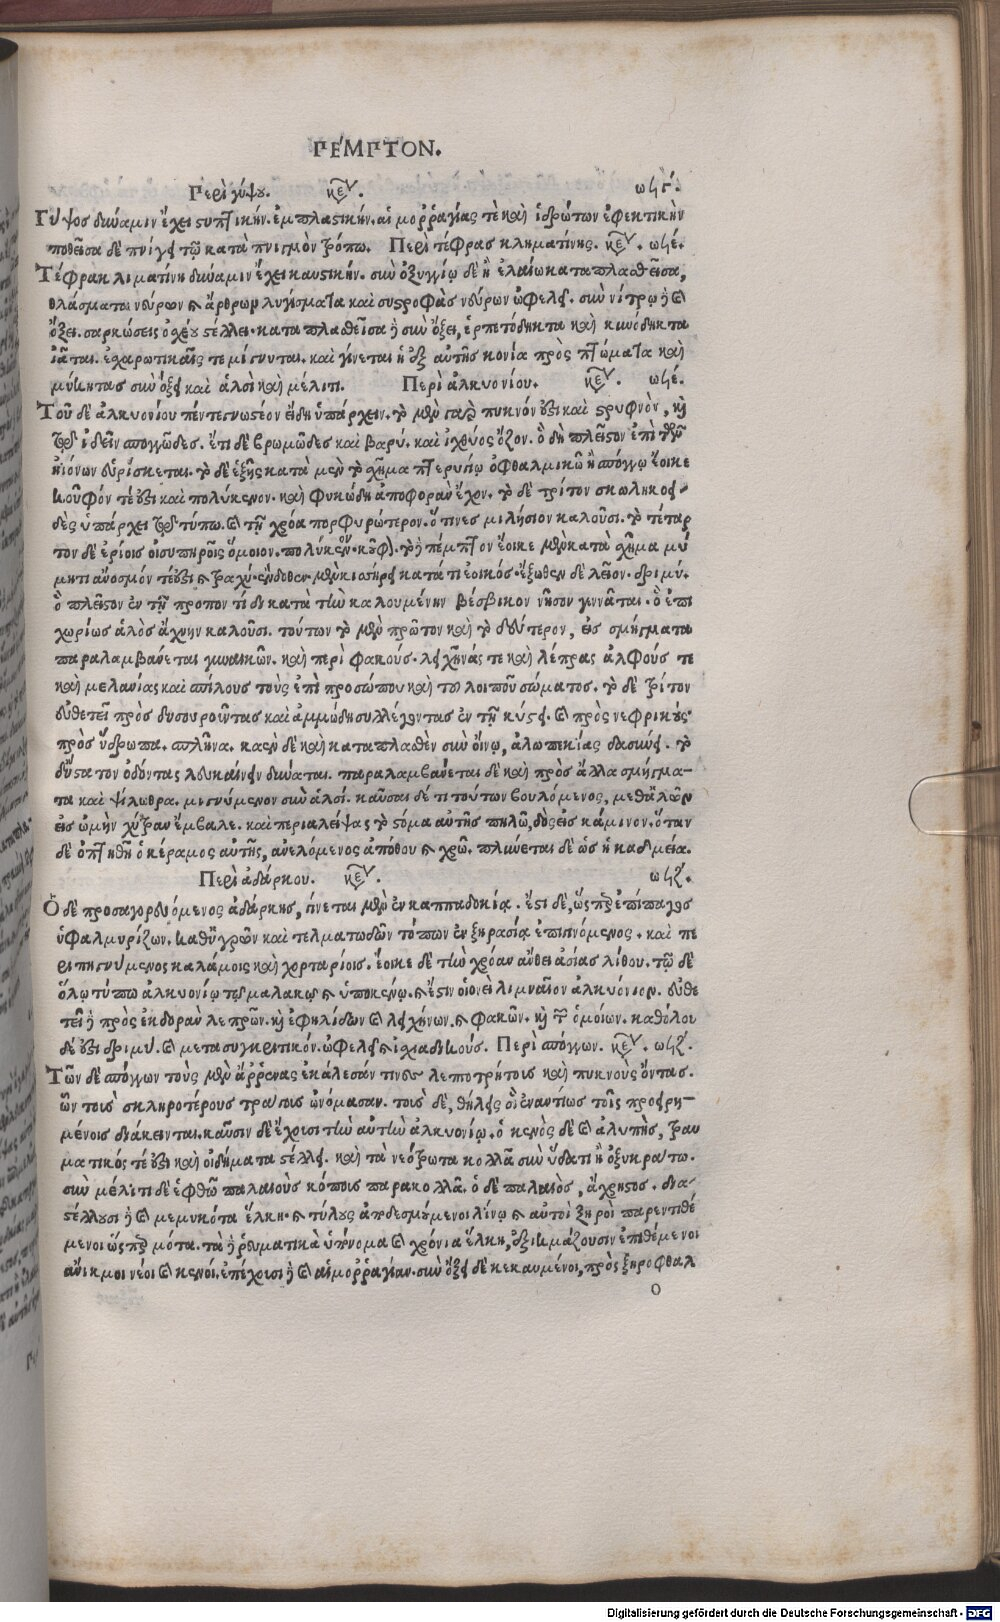 ΠΈΜΠΤΟΝ.
Περὶ γύψου. κεφ. ωϟγ.
Γύψος δύναμιν ἔχει στυπτικήν. ἐμπλαστικήν. αἱμορραγίας τὲ καὶ ἱδρώτων ἐφεκτικὴν
ποθεῖσα δὲ πνίγει τῷ κατὰ πνιγμὸν τρόπω. Περὶ τέφρας κληματίνης. κεφ. ωϟέ.
Τέφρα κλιματίνη δύναμιν ἔχει καυστικήν. σὺν ὀξυγγίῳ δὲ ἢ ἐλαίω καταπλασθεῖσα,
θλάσματα νεύρων καὶ ἄρθρων λυγίσματα καὶ συστροφὰς νεύρων ὠφελεῖ. σὺν νίτρῳ ἢ καὶ
ὄξει. σαρκώσεις ὀχέου στέλλει. καταπλασθεῖσα ἢ σὺν ὄξει, ἑρπετόδηκτα καὶ κυνόδηκτα
ἰᾶται. ἐχαρωτικαῖς τε μίγνυται. καὶ γίνεται ἡ ἐξ αὐτῆς κονία πρὸς πτώματα καὶ
μύκητας σὺν ὄξει καὶ ἁλσὶ καὶ μέλιτι. Περὶ ἀλκυονίου. κεφ. ωϟέ.
Τοῦ δὲ ἀλκυονίου πέντε γνωστέον εἴδη ὑπάρχειν. τὸ μὲν γὰρ πυκνόν ἐστι καὶ στρυφνὸν, καὶ
τῷ ἰδεῖν σπογγῶδες. ἔτι δὲ βρωμῶδες καὶ βαρύ. καὶ ἰχθύος ὄζον. ὃ δὴ πλεῖστον ἐπὶ τῶν
ἠιόνων εὑρίσκεται. τὸ δὲ ἑξῆς κατὰ μὲν τὸ σχῆμα πτερυγίῳ ὀφθαλμικῶ ἢ σπόγγω ἔοικε
κοῦφόν τέ ἐστι καὶ πολύκενον. καὶ φυκώδη ἀποφορὰν ἔχον. τὸ δὲ τρίτον σκωληκοει-
δὲς ὑπάρχει τῷ τύπω. καὶ τῇ χρόα πορφυρώτερον. ὅ τινες μιλήσιον καλοῦσι. τὸ τέταρ
τον δὲ ἐρίοις οἰσυπηροῖς ὅμοιον. πολύκενον. κοῦφον. τὸ ἢ πέμπτον ἔοικε μὲν κατὰ σχῆμα μύ
μητι ἄνοσμόν τέ ἐστι καὶ τραχύ. ἔνδοθεν μὲν κισσήρει κατά τι ἐοικός. ἔξωθεν δὲ λεῖον. δριμύ.
ὃ πλεῖστον ἐν τῇ προποντίδι κατὰ τὴν καλουμένην βέσβικον νῆσον γεννᾶται. ὃ ἐπι
χωρίως ἁλὸς ἄχνην καλοῦσι. τούτων τὸ μὲν πρῶτον καὶ τὸ δεύτερον, εἰς σμήγματα
παραλαμβάνεται γυναικῶν. καὶ περὶ φακούς. λειχῆνάς τε καὶ λέπρας ἀλφούς τε
καὶ μελανίας καὶ σπίλους τοὺς ἐπὶ προσώπου καὶ τοῦ λοιποῦ σώματος. τὸ δὲ τρίτον
εὐθετεῖ πρὸς δυσουροῦντας καὶ ἀμμώδη συλλέγοντας ἐν τῇ κύστει. καὶ πρὸς νεφρικούς.
πρὸς ὕδρωπα. σπλῆνα. καὲν δὲ καὶ καταπλασθὲν σὺν οἴνῳ, ἀλωπεκίας δασύνει. τὸ
δὕστατον ὀδόντας λευκαίνειν δύναται. παραλαμβάνεται δὲ καὶ πρὸς ἄλλα σμήγμα-
τα καὶ ψίλωθρα. μιγνύμενον σὺν ἁλσί. καῦσαι δέ τι τούτων βουλόμενος, μεθ' ἁλῶν
εἰς ὠμὴν χύτραν ἔμβαλε. καὶ περιαλείψας τὸ στόμα αὐτῆς πηλῶ, δὸς εἰς κάμινον. ὅταν
δὲ ὀπτηθῇ ὁ κέραμος αὐτῆς, ἀνελόμενος ἀπόθου καὶ χρῶ. πλύνεται δὲ ὡς ἡ καδμεία.
Περὶ ἀδάρκου. κεφ. ωϟζ.
Ὁ δὲ προσαγορευόμενος ἀδάρκης, γίνεται μὲν ἐν καππαδοκίᾳ. ἔστι δὲ, ὥσπερ ἐπίπαγος
ὑφαλμυρίζων. καθ' ὑγρῶν καὶ τελματωδῶν τόπων ἐν ξηρασίᾳ ἐπιγινόμενος. καὶ πε
ριπηγνύμενος καλάμοις καὶ χορταρίοις. ἔοικε δὲ τὴν χρόαν ἄνθει ἀσίας λίθου. τῷ δὲ
ὅλῳ τύπω ἀλκυονίῳ τῷ μαλακῷ καὶ ὑποκένῳ. καὶ ἔστιν οἱονεὶ λιμναῖον ἀλκυόνιον. εὐθε
τεῖ ἢ πρὸς ἐκδορὰν λεπρῶν. καὶ ἐφηλίδων καὶ λειχήνων. καὶ φακῶν. καὶ τῶν ὁμοίων. καθόλου
δέ ἐστι δριμύ. καὶ μετασυγκριτικόν. ὠφελεῖ καὶ ἰσχιαδικούς. Περὶ σπόγγων. κεφ. ωϟζ.
Τῶν δὲ σπόγγων τοὺς μὲν ἄρρενας ἐκάλεσάν τινες λεπτοτρήτοις καὶ πυκνοὺς ὄντας.
ὧν τοὺς σκληροτέρους τράγοις ὠνόμασαν. τοὺς δὲ, θήλεις οἳ ἐναντίως τοῖς προειρη-
μένοις διάκεινται. καῦσιν δὲ ἔχουσι τὴν αὐτὴν ἀλκυονίῳ. ὁ κενὸς δὲ καὶ ἀλυπὴς, τραυ
ματικός τέ ἐστι καὶ οἰδήματα στέλλει. καὶ τὰ νεότρωτα κολλᾶ σὺν ὕδατι ἢ ὀξυκράτω.
σὺν μέλιτι δὲ ἑφθῶ παλαιοὺς κόπους παρακολλᾶ. ὁ δὲ παλαιὸς, ἄχρηστος. δια-
στέλλουσι ἢ καὶ μεμυκότα ἕλκη. καὶ τύλους ἀποδεσμούμενοι λίνῳ καὶ αὐτοὶ ξηροὶ παρεντιθέ
μενοι ὥσπερ μότα. τὰ ἢ ῥευματικὰ ὑπόνομα καὶ χρόνια ἕλκη, ἐξικμάζουσιν ἐπιθέμενοι
ἄνικμοι νέοι καὶ κενοί. ἐπέχουσι ἢ καὶ αἱμορραγίαν. σὺν ὄξει δὲ κεκαυμένοι, πρὸς ξηροφθαλ
ο
Digitalisierung gefördert durch die Deutsche Forschungsgemeinschaft - DFG